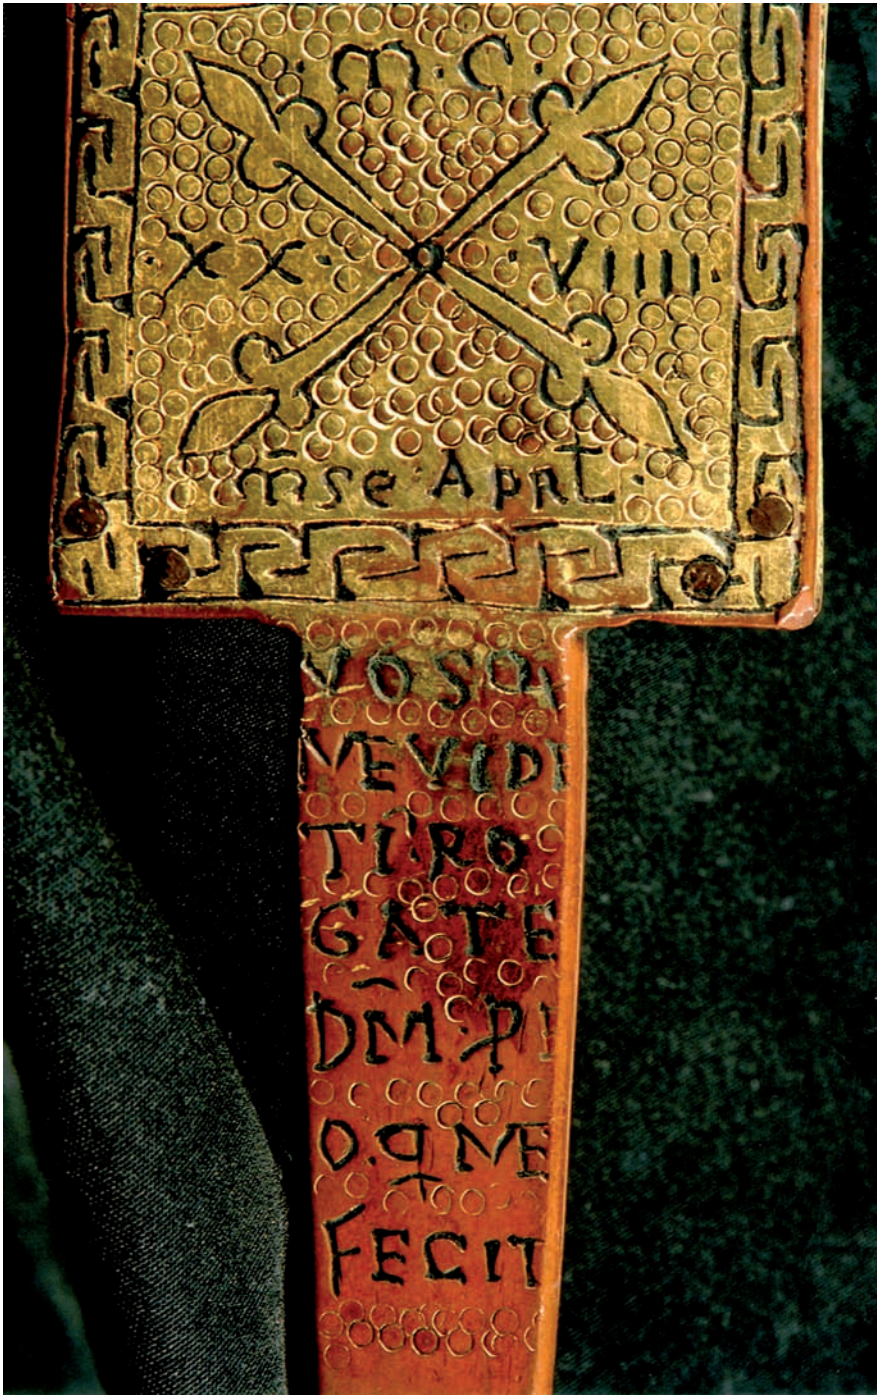 ·m·C·
XX· ·VIIII·
m̄se·Aprł·
VOSQI
MEVIDE
TI·RO
GATE
DM̄·PI
O·q ME
FECIT